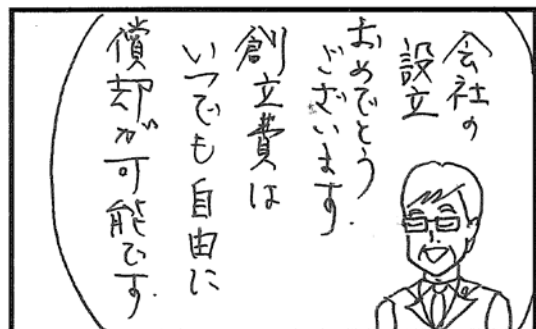 会社の
設立
おめでとう
ございます.
創立費は
いつでも自由に
償却が可能です.